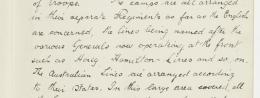 of troops. The camps are all arranged
in their separate Regiments so far as the English
are concerned, the lines being named after the
various Generals now operating at the front
such as Haig, Hamilton - Lines and so on.
The Australian Lines are arranged according
to their States. In this large area covered all